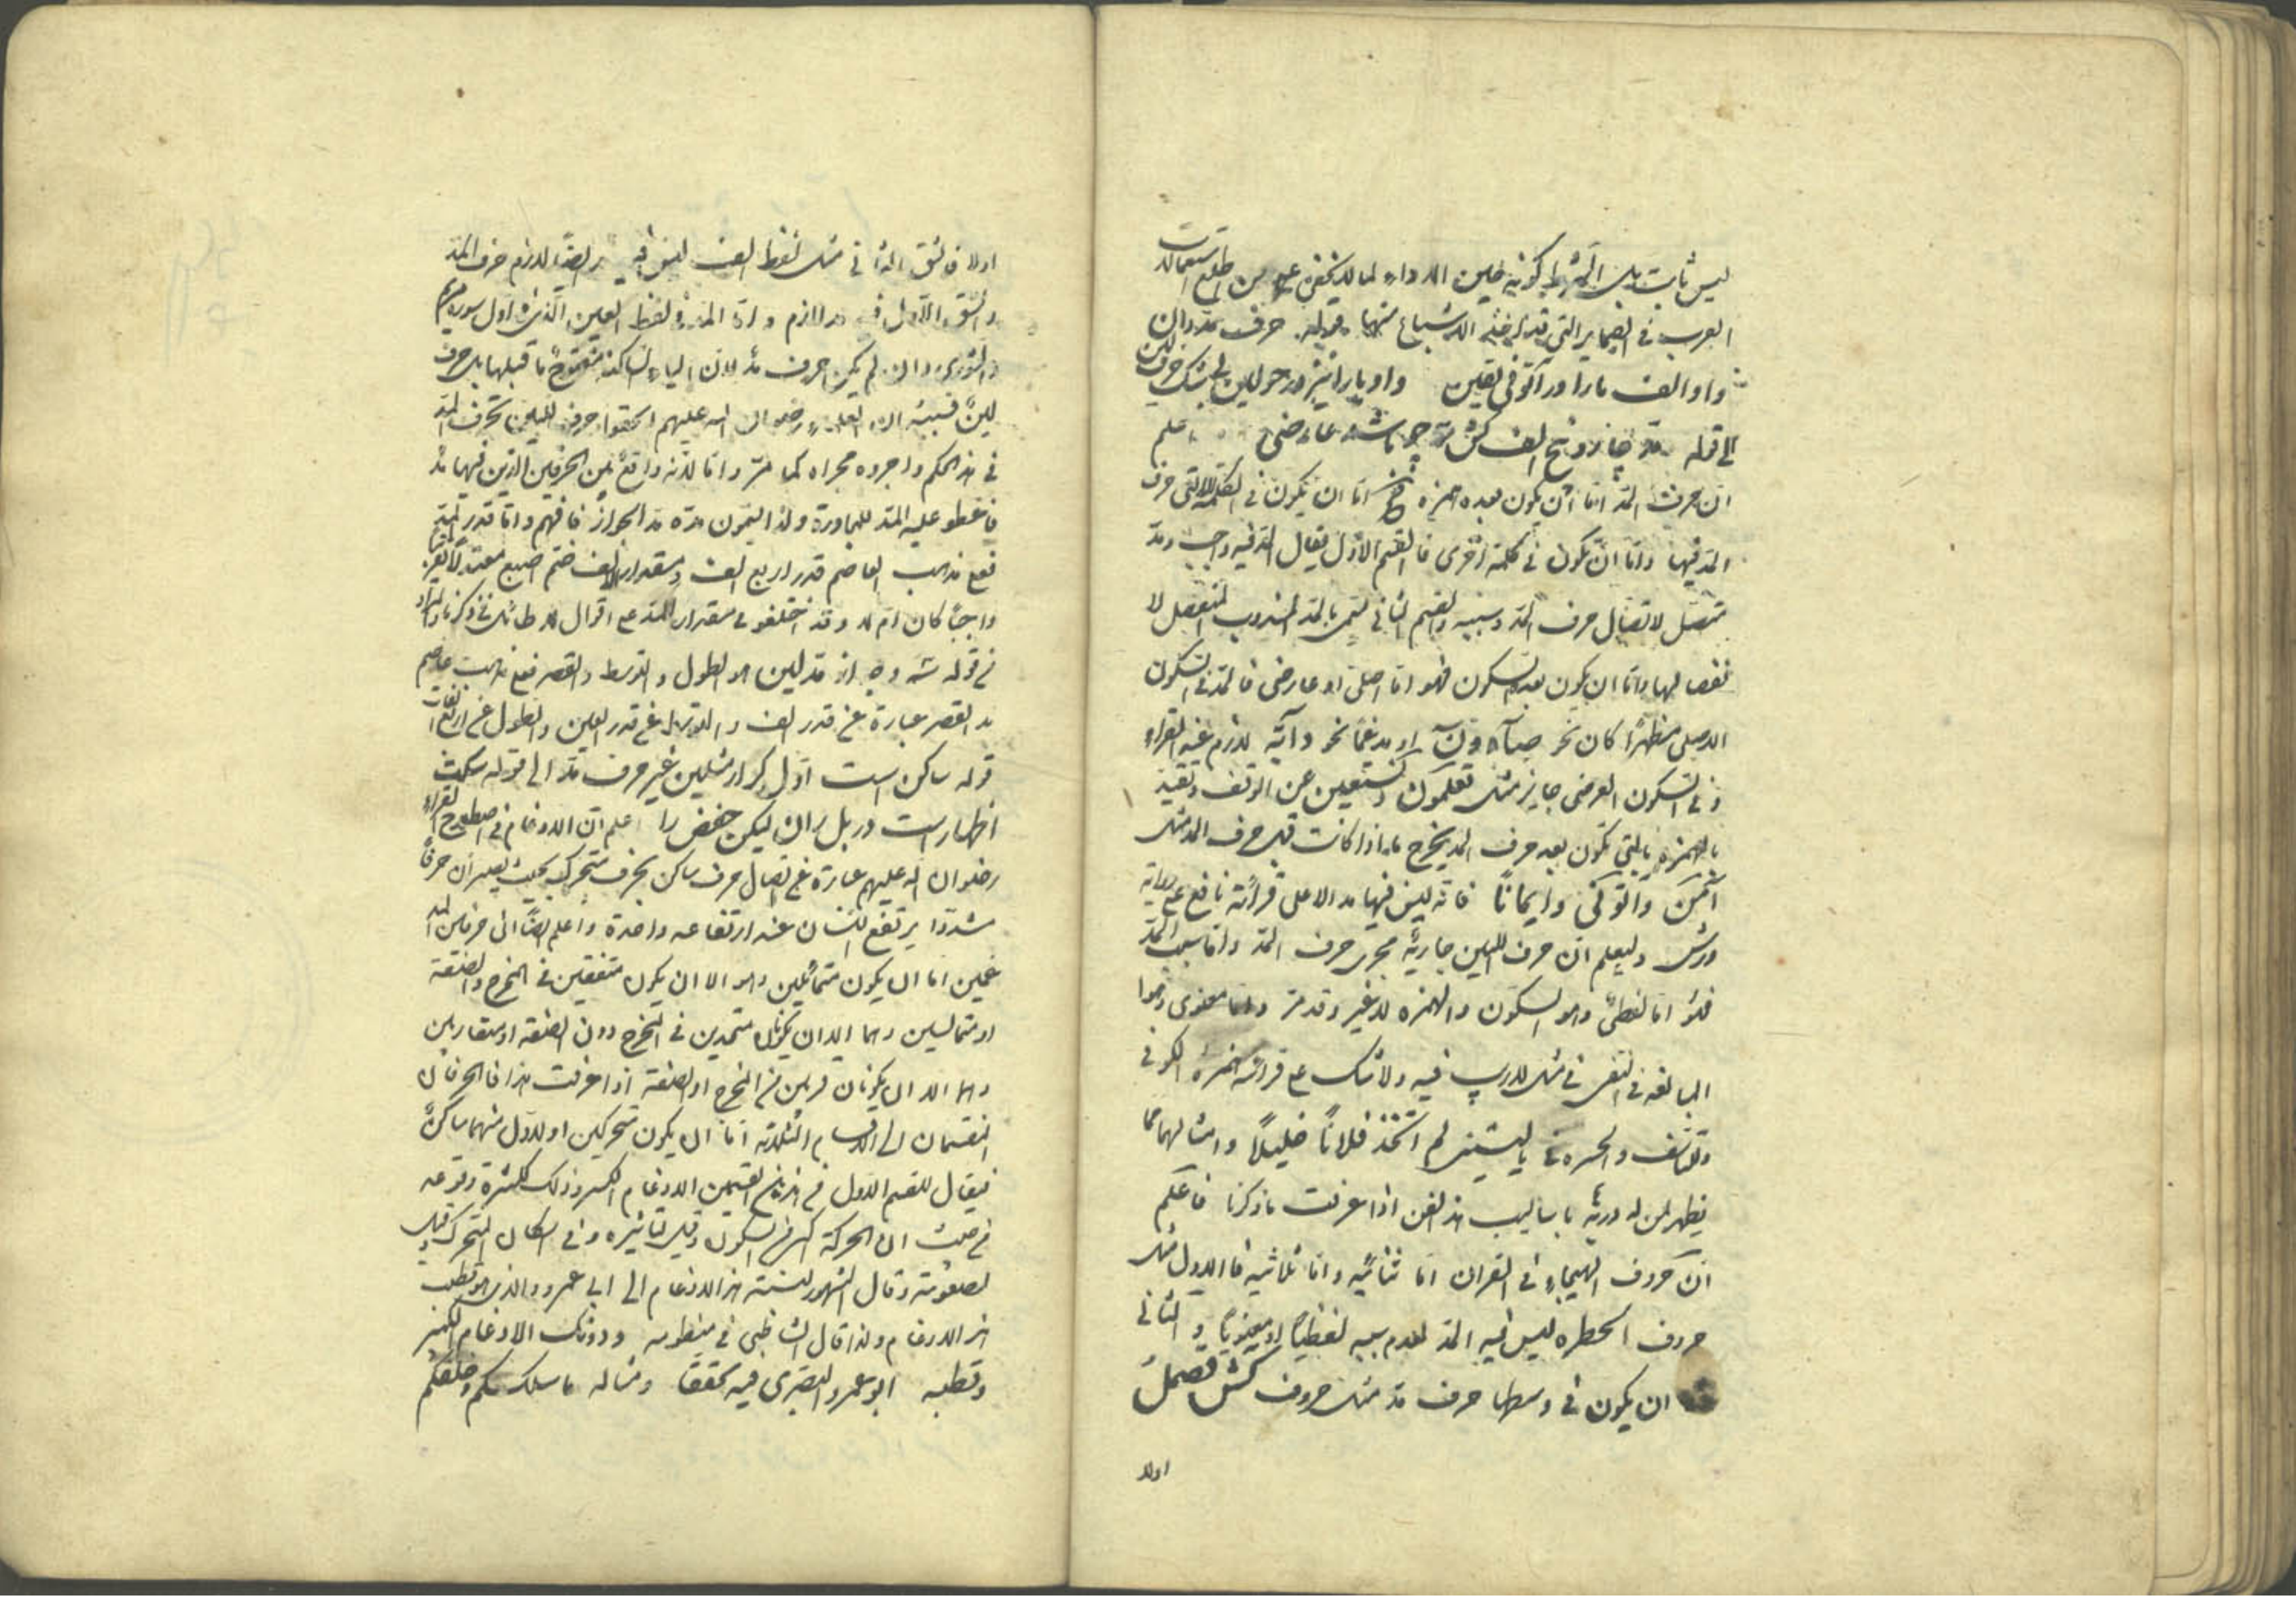 ليس ثابت بل الشرط كونه حين الاداء لما لا يخفى على من اطلع استعمالات
العرب في الضماير التي قد يدخله الاشباع منها قوله حرف مد دان
واو والف يا را در آتوني يقين واو يا را نيز در حولين لين
الى قوله مد جايز و نج الف كش ترجو باشد عارضى اعلم
ان حرف المد اما ان يكون بعده همزه فح اما ان يكون في الكلمة التى حرف
المد فيها واما ان يكون في كلمة اخرى فالقسم الاول يقال المد فيه واجب ومد
متصل لاتصال حرف المد وسببه والقسم الثانى يسمى بالمد المندوب المنفصل لا
نفصالهما واما ان يكون بعده السكون فهو اما اصلى او عارضى فالمد في السكون
الاصلى مظهرًا كان نحو صآد وقٓ او مدغمًا نحو دآبّة لازم عند القراء
وفي السكون العرضى جايز مثل تعلمون ونستعين حين الوقف وتقييد
بالهمزه بالتي يكون بعد حرف المد يخرج ما اذا كانت قبل حرف المد مثل
آمن وآتوني وايمانًا فانه ليس فيها مد الا على قرائة نافع على رواية
ورش وليعلم ان حرف اللين جارية مجرى حرف المد واما سبب المد
فهو اما لفظى وهو السكون والهمزه لا غير وقد مر واما معنوى وهو
المبالغه في النفى في مثل لا ريب فيه ولا شك على قرائة حمزة الكوفى
وللتأسف والحسره في ياليتنى لم اتخذ فلانًا خليلًا وامثالهما مما
يظهر لمن له دربة باساليب هذا الفن اذا عرفت ما ذكرنا فاعلم
ان حروف الهيجاء في القران اما ثنائيه واما ثلاثيه فالاول مثل
حروف الحطره ليس فيه المد لعدم سببه لفظيًا او معنويًا والثانى
ان يكون في وسطها حرف مد مثل حروف كش قصمل
اولا
اولا فالشق الثانى مثل لفظ الف ليس فيه ايضًا لازم حرف المد
والشق الاول فيه مد لازم واما المد في لفظ العين الذى في اول سورة مريم
والشورى وان لم يكن حرف مد لان الياء الساكنه مفتوح ما قبلها بل حرف
لين فسببه ان العلماء رضوان الله عليهم الحقوا حرف اللين بحرف المد
في هذا الحكم واجروه مجراه كما مر واما لانه واقع بين الحرفين الذين فيهما مد
فاعطو عليه المد للمجاورة ولذا يسمون مده مد الجواز فافهم واما قدر المد
فعلى مذهب العاصم قدر اربع الف ومقدار الالف ضم اصبع معتدلًا
واجبًا كان ام لا وقد اختلفو في مقدار المد على اقوال
في قوله شد وجه از مد لين هو الطول والتوسط والقصر فعلى مذهب عاصم
مد القصر عبارة عن قدر الف والتوسط عن قدر الفين والطول عن اربع الفات
قوله ساكن است اول كر از مثلين غير حرف مد الى قوله سكت
اظهارست در بل ران ليكن حفص را اعلم ان الادغام في اصطلاح القراء
رضوان الله عليهم عبارة عن ايصال حرف ساكن بحرف متحرك بحيث يصيران حرفًا
مشددًا يرتفع اللسان عنه ارتفاعه واحدة واعلم ايضًا ان حرفين
اما ان يكون متماثلين وهو الا ان يكون متفقين في المخرج والصفة
او متجانسين وهما الا ان يكونا متحدين في المخرج دون الصفة او متقاربين
وهما الا ان يكونان قريبين في المخرج او الصفة اذا عرفت هذا فالحرفان
المنقسمان الى الاقسام الثلاثه اما ان يكون متحركين او الاول منهما ساكنًا
فيقال للقسم الاول من هذين القسمين الادغام الكبير وذلك لكثرة وقوعه
من حيث ان الحركة اكثر من السكون وقيل لتاثيره في اسكان المتحرك وقيل
لصعوبته وقال المشهور لنسبته هذا الادغام الى ابى عمرو والذى هو قطب
هذا الادغام ولذا قال الشاطبى في منظومه ودونك الادغام الكبير
وقطبه ابو عمرو البصرى فيه تحققا ومثاله ما سلككم وخلقكم